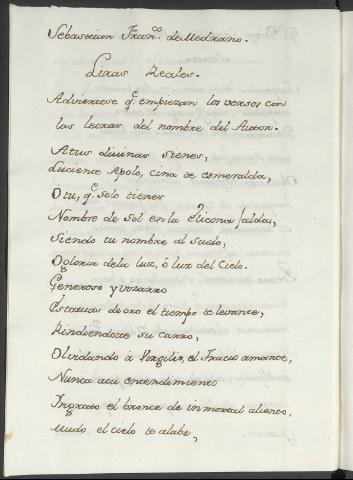 Sebastian Fran.co de Medrano.
Liras Reales.
Adviertese q.e empiezan los versos con
las letras del nombre del Autor.
A tus divinas sienes,
Luciente Apolo, cina de esmeralda,
O tu, q.e solo tienes
Nombre de Sol en la Elicona falda,
Siendo tu nombre al Suelo,
O gloria de la luz, ô luz del Cielo.
Generoso y vizarro
Estatuas de oro el tiempo te levante,
Rindiendote su carro,
Olvidando à Virgilio, el Tracio amante,
Nunca a tu entendimiento
Ingrato el bronce de inmortal aliento,
Mudo el cielo te alabe,